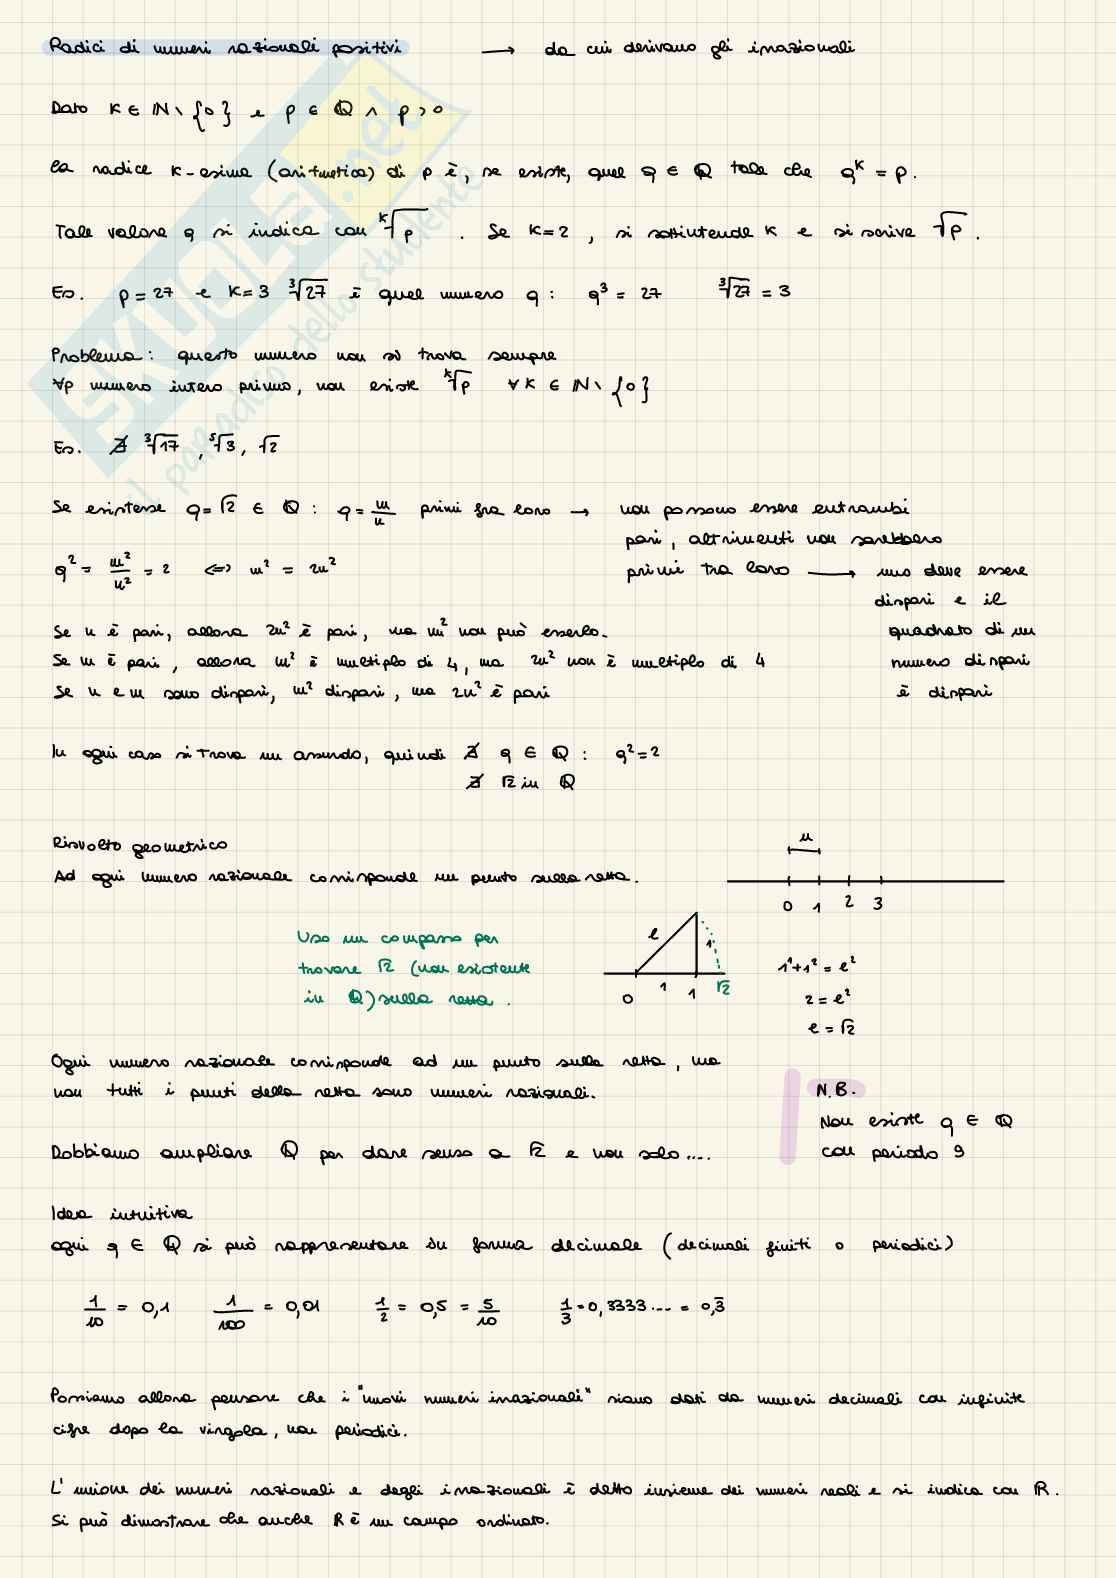 Radici di numeri razionali positivi → da cui derivano gli irrazionali
Dato K ∈ ℕ \ {0} e p ∈ ℚ ∧ p > 0
la radice K-esima (aritmetica) di p è, se esiste, quel q ∈ ℚ tale che q^K = p.
Tale valore q si indica con ᴷ√p . Se K=2, si sottintende K e si scrive √p.
Es. p = 27 e K = 3 ³√27 è quel numero q : q³ = 27 ³√27 = 3
Problema: questo numero non si trova sempre
∀p numero intero primo, non esiste ᴷ√p ∀K ∈ ℕ \ {0}
Es. ∄ ³√17 , ⁵√3, √2
Se esistesse q = √2 ∈ ℚ : q = m/n primi fra loro → non possono essere entrambi
pari, altrimenti non sarebbero
primi tra loro → uno deve essere
dispari e il
quadrato di un
numero dispari
è dispari
q² = m²/n² = 2 <=> m² = 2n²
Se n è pari, allora 2n² è pari, ma m² non può esserlo.
Se m è pari, allora m² è multiplo di 4, ma 2n² non è multiplo di 4
Se n e m sono dispari, m² dispari, ma 2n² è pari
In ogni caso si trova un assurdo, quindi ∄ q ∈ ℚ : q² = 2
∄ √2 in ℚ
Risvolto geometrico
Ad ogni numero razionale corrisponde un punto sulla retta.
u
0 1 2 3
Uso un compasso per
trovare √2 (non esistente
in ℚ) sulla retta.
l 1
0 1 1 √2
1²+1² = l²
2 = l²
l = √2
Ogni numero razionale corrisponde ad un punto sulla retta, ma
non tutti i punti della retta sono numeri razionali.
N.B.
Non esiste q ∈ ℚ
con periodo 9
Dobbiamo ampliare ℚ per dare senso a √2 e non solo....
Idea intuitiva
ogni q ∈ ℚ si può rappresentare in forma decimale (decimali finiti o periodici)
1/10 = 0,1 1/100 = 0,01 1/2 = 0,5 = 5/10 1/3 = 0,3333... = 0,3̅
Possiamo allora pensare che i "nuovi numeri irrazionali" siano dati da numeri decimali con infinite
cifre dopo la virgola, non periodici.
L'unione dei numeri razionali e degli irrazionali è detto insieme dei numeri reali e si indica con ℝ.
Si può dimostrare che anche ℝ è un campo ordinato.
SKUOLA.net
il paradiso dello studente